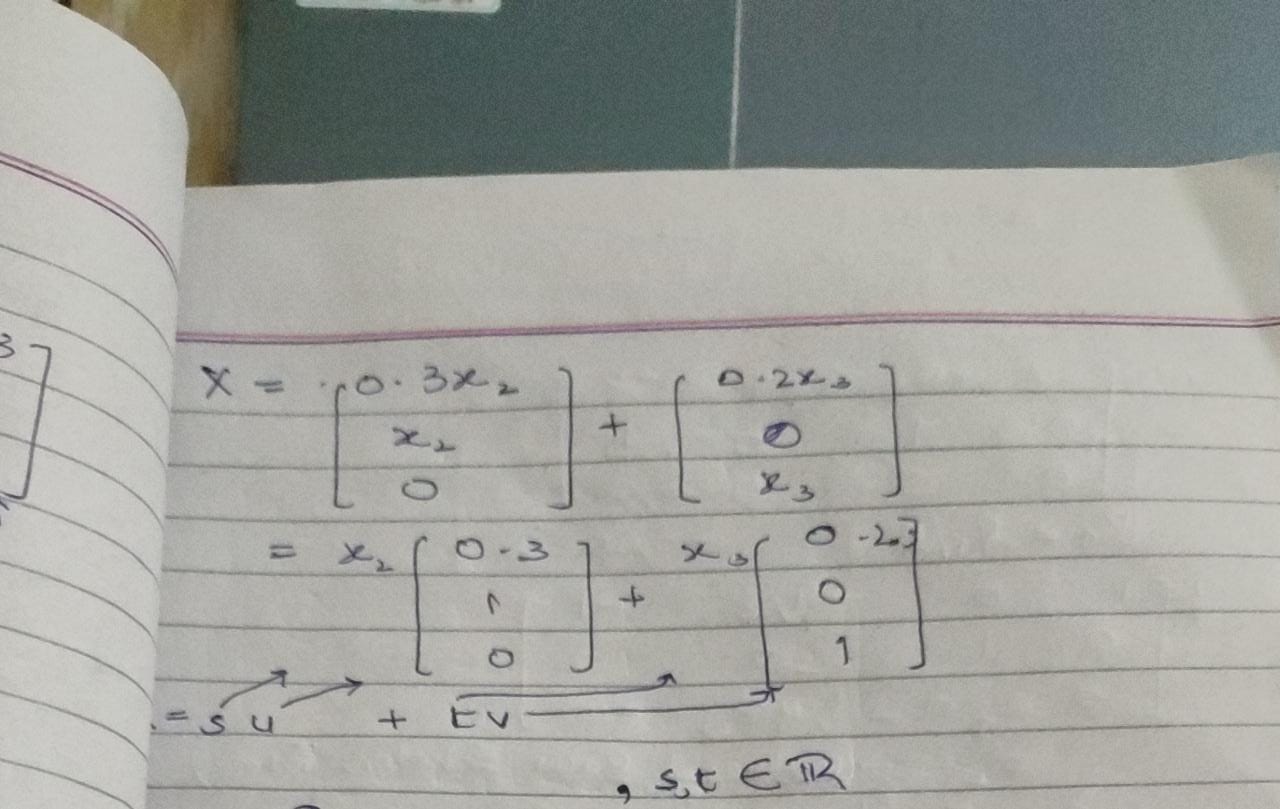 3
X = [0.3x₂ x₂ 0] + [0.2x₃ 0 x₃]
= x₂ [0.3 1 0] + x₃ [0.2 0 1]
= s u + t v
, s,t ∈ ℝ